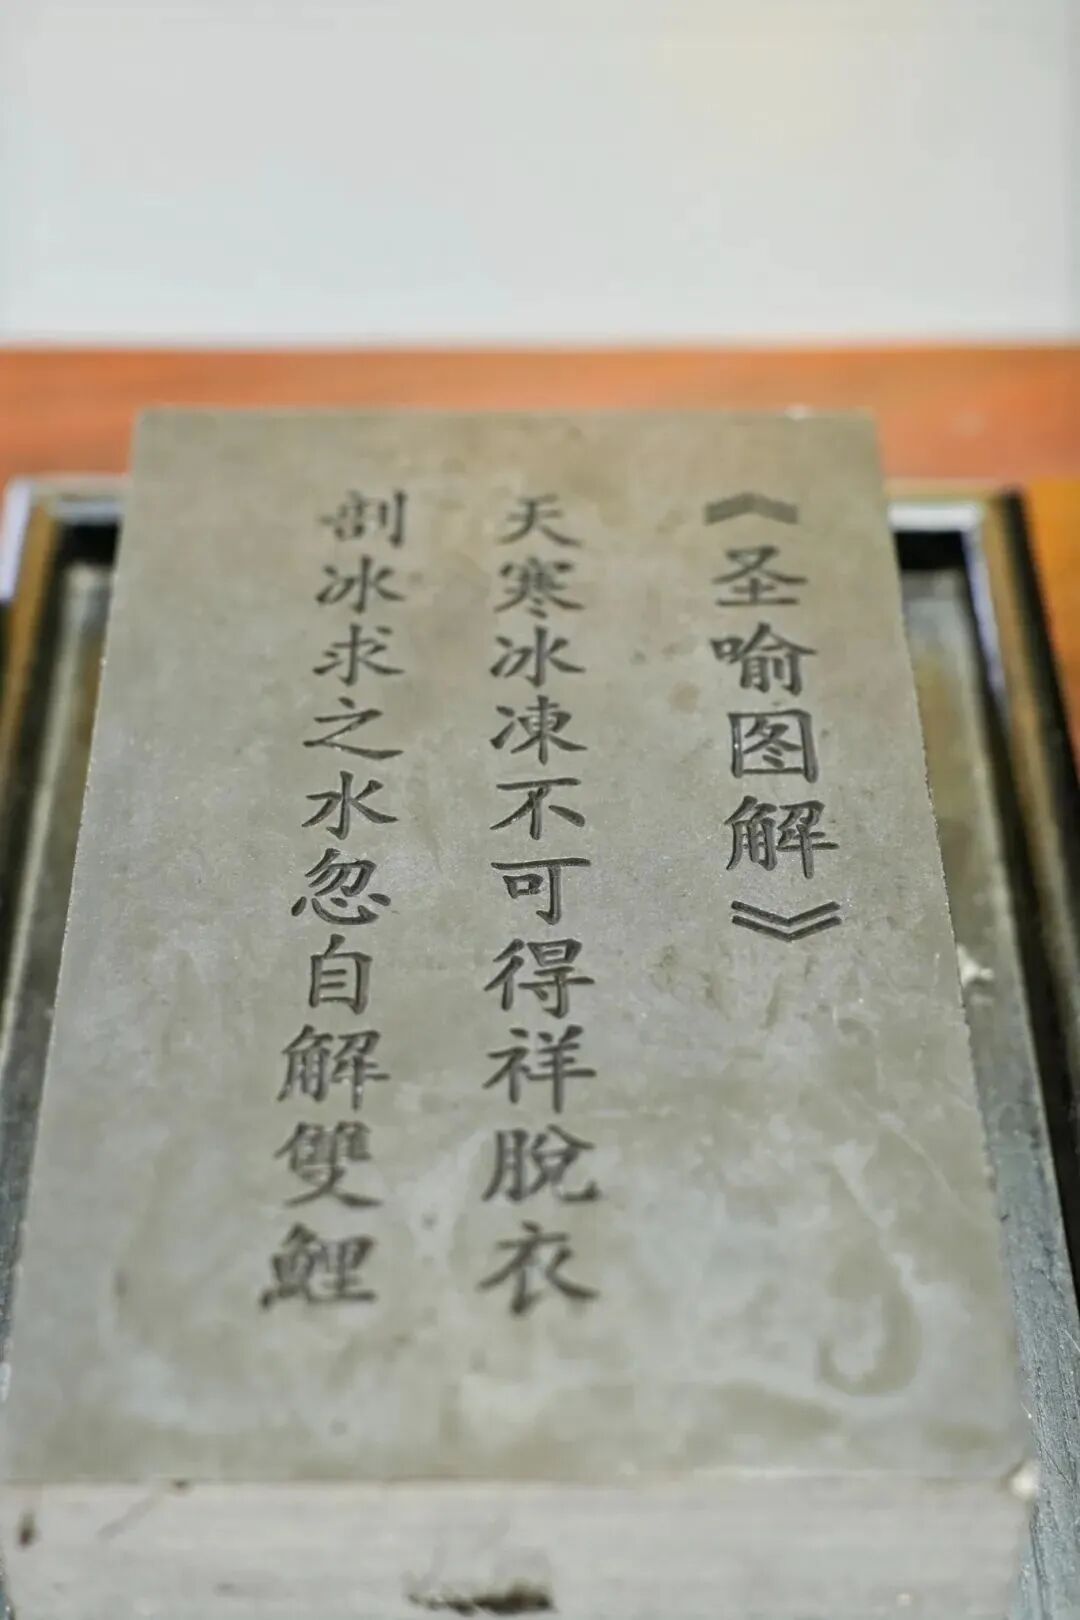 《圣喻图解》
天寒冰凍不可得祥脫衣
剖冰求之水忽自解雙鯉